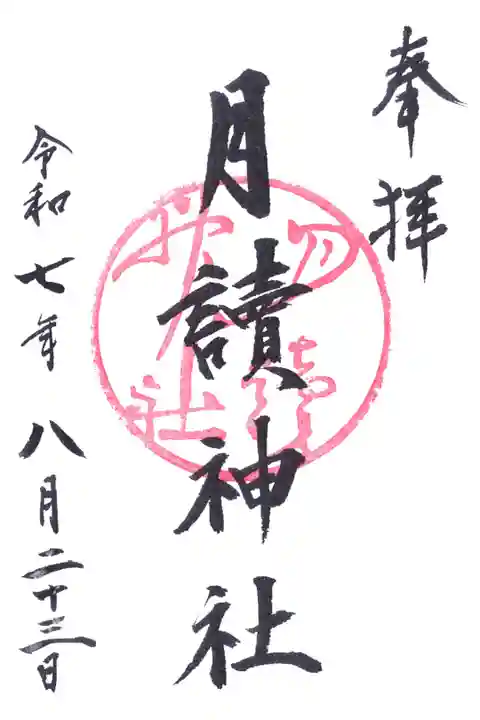 奉拝
月讀神社
令和七年八月二十三日